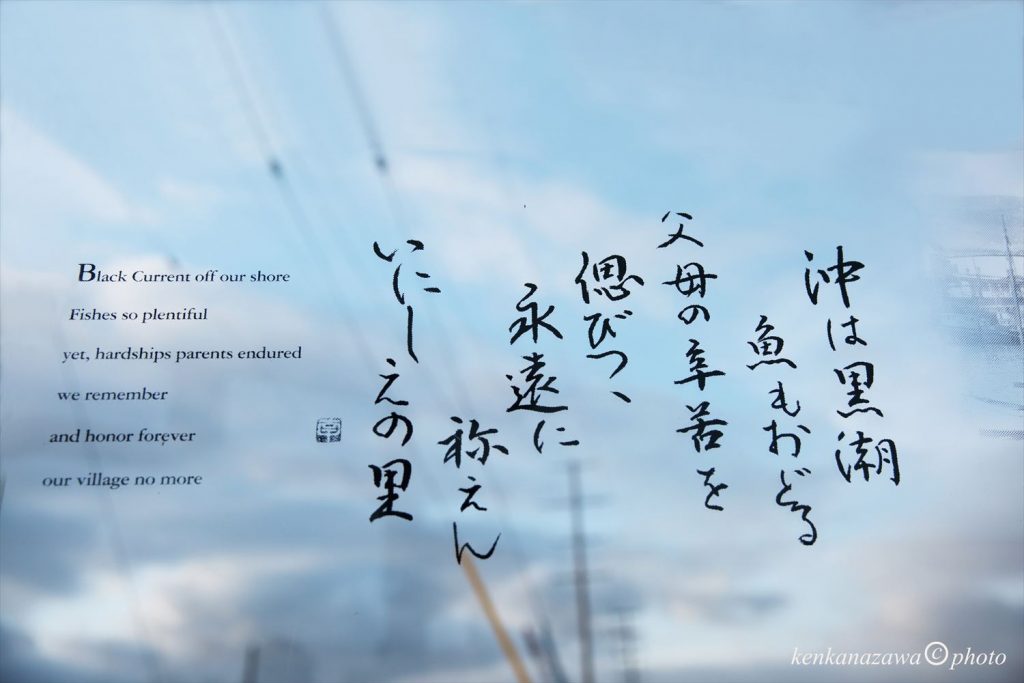 Black Current off our shore
Fishes so plentiful
yet, hardships parents endured
we remember
and honor forever
our village no more
沖は黒潮
魚もおどる
父母の辛苦を
偲びつゝ
永遠に
称えん
いにしえの里
kenkanazawa©photo